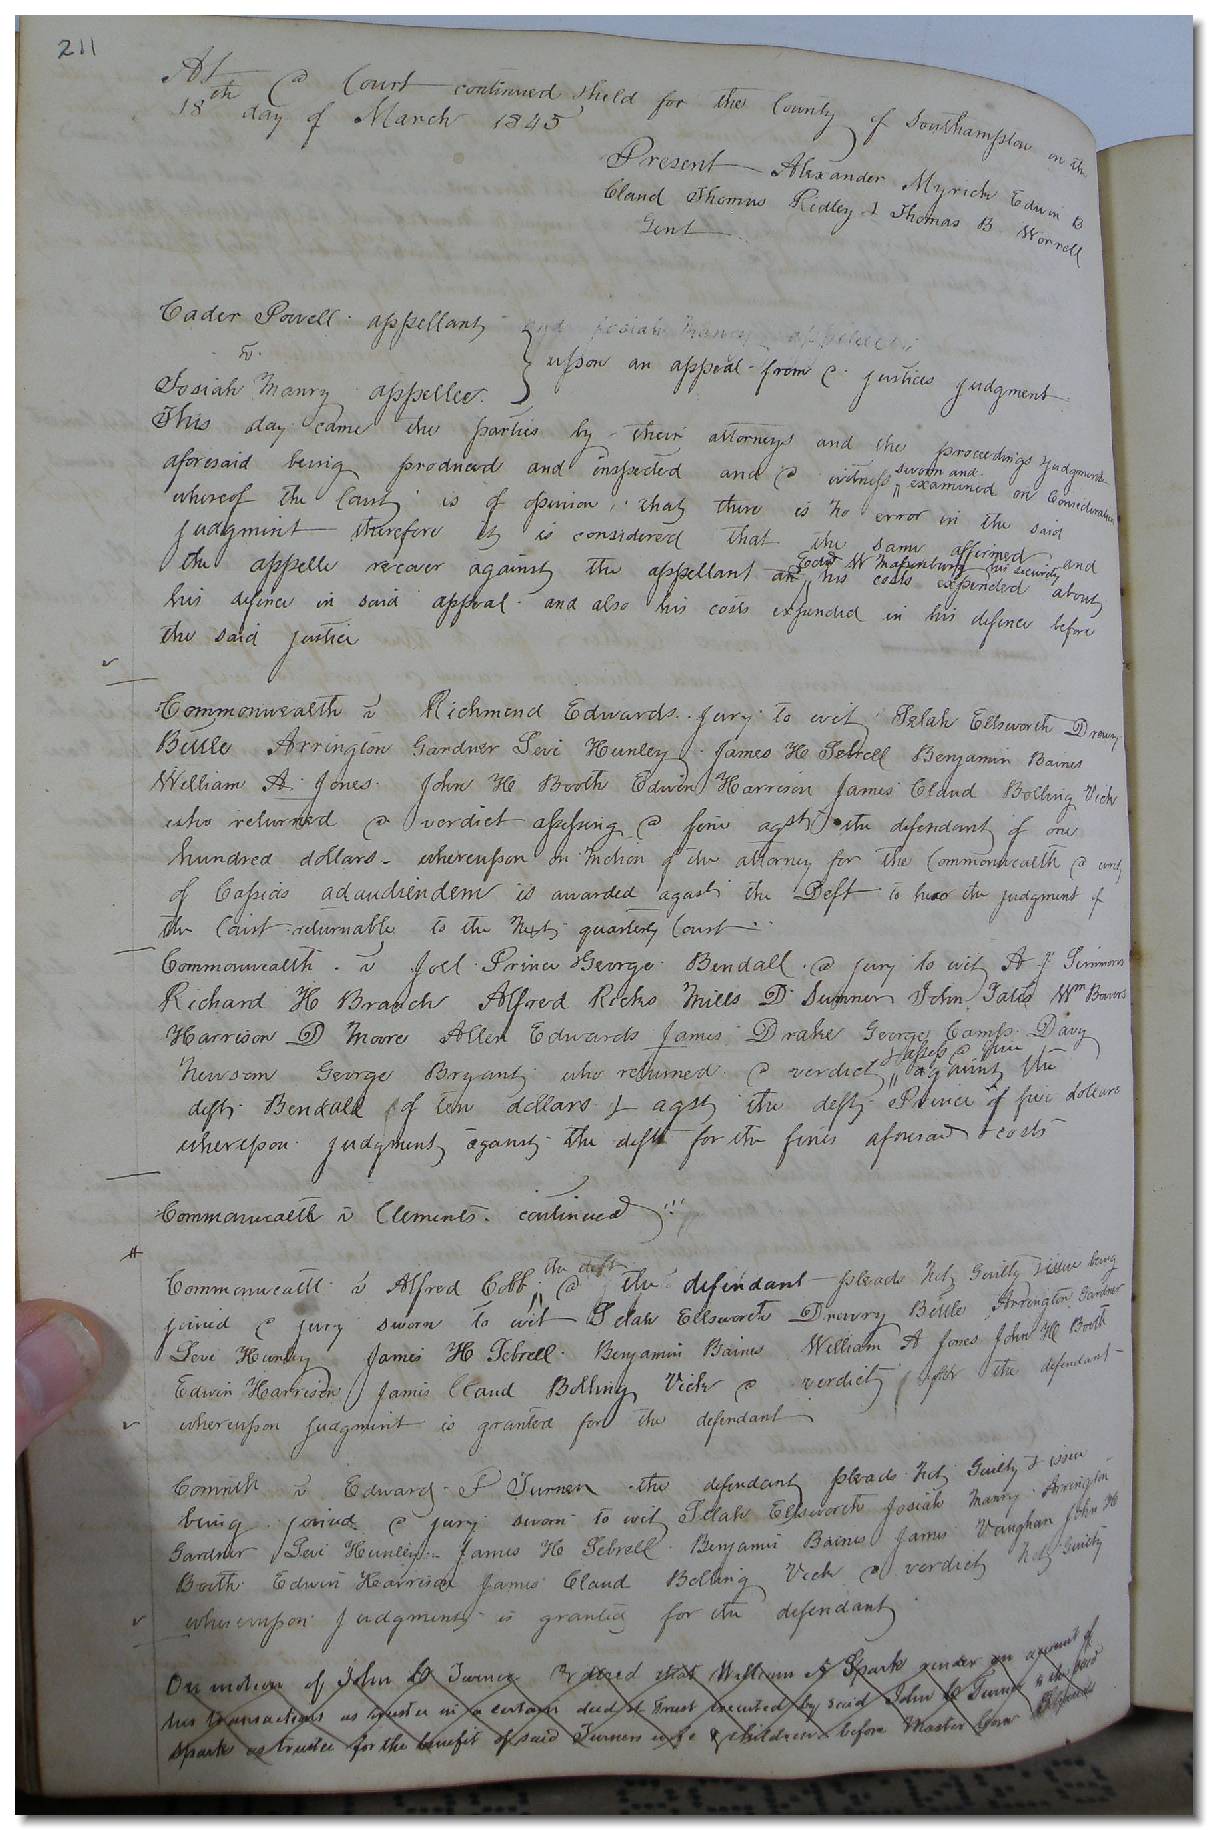 211
At a Court continued & held for the County of Southampton on the
18th day of March 1845
Present Alexander Myrick Edwin B
Claud Thomas Ridley & Thomas B Worrell
Gent
Cader Powell appellant and Josiah Manry appellee
v
upon an appeal from a justices judgment
Josiah Manry appellee
This day came the parties by their attorneys and the proceedings & judgment
aforesaid being produced and inspected and a witness sworn and examined on Consideration
whereof the Court is of opinion that there is no error in the said
judgment therefore it is considered that the same affirmed and
the appelle recover against the appellant an his security his costs expended about
his defence in said appeal and also his costs expended in his defence before
the said justice
Commonwealth v Richmond Edwards jury to wit Selah Ellsworth Drewry
Bittle Arrington Gardner Levi Hunley James H Sebrell Benjamin Baines
William A Jones John H Booth Edwin Harrison James Claud Bolling Vick
who returned a verdict assessing a fine agst the defendant of one
hundred dollars whereupon on motion of the attorney for the Commonwealth a writ
of Capias ad audiendem is awarded agast the Deft to hear the judgment of
the Court returnable to the next quarterly Court
Commonwealth v Joel Prince George Bendall a jury to wit A J Simmons
Richard H Branch Alfred Ricks Mills D Sumner John Wm
Harrison D Moore Allen Edwards James Drake George Camp Davy
Newsom George Bryant who returned a verdict & assess a fine against the
deft Bendall of ten dollars & agst the deft Prince of five dollars
whereupon judgment against the deft for the fines aforesaid & costs
Commonwealth v Clements continued
Commonwealth v Alfred Cobb the deft a the defendant pleads not Guilty & issue being
joined a jury sworn to wit Selah Ellsworth Drewry Bittle Arrington Gardner
Levi Hunley James H Sebrell Benjamin Baines William A Jones John H Booth
Edwin Harrison James Claud Bolling Vick a verdict for the defendant
whereupon judgment is granted for the defendant
Comwlth v Edward P Turner the defendant pleads not Guilty & issue
being joined a jury sworn to wit Selah Ellsworth Josiah Manry Arrington
Gardner Levi Hunley James H Sebrell Benjamin Baines James Vaughan John H
Booth Edwin Harrison James Claud Bolling Vick a verdict not Guilty
whereupon judgment is granted for the defendant
On motion of John Turner Ordered that William Spark render an account of
his transactions as trustee in a certain deed of Trust executed by said John Turner & the said
Spark as trustee for the benefit of said Turners wife & children before Master Comr